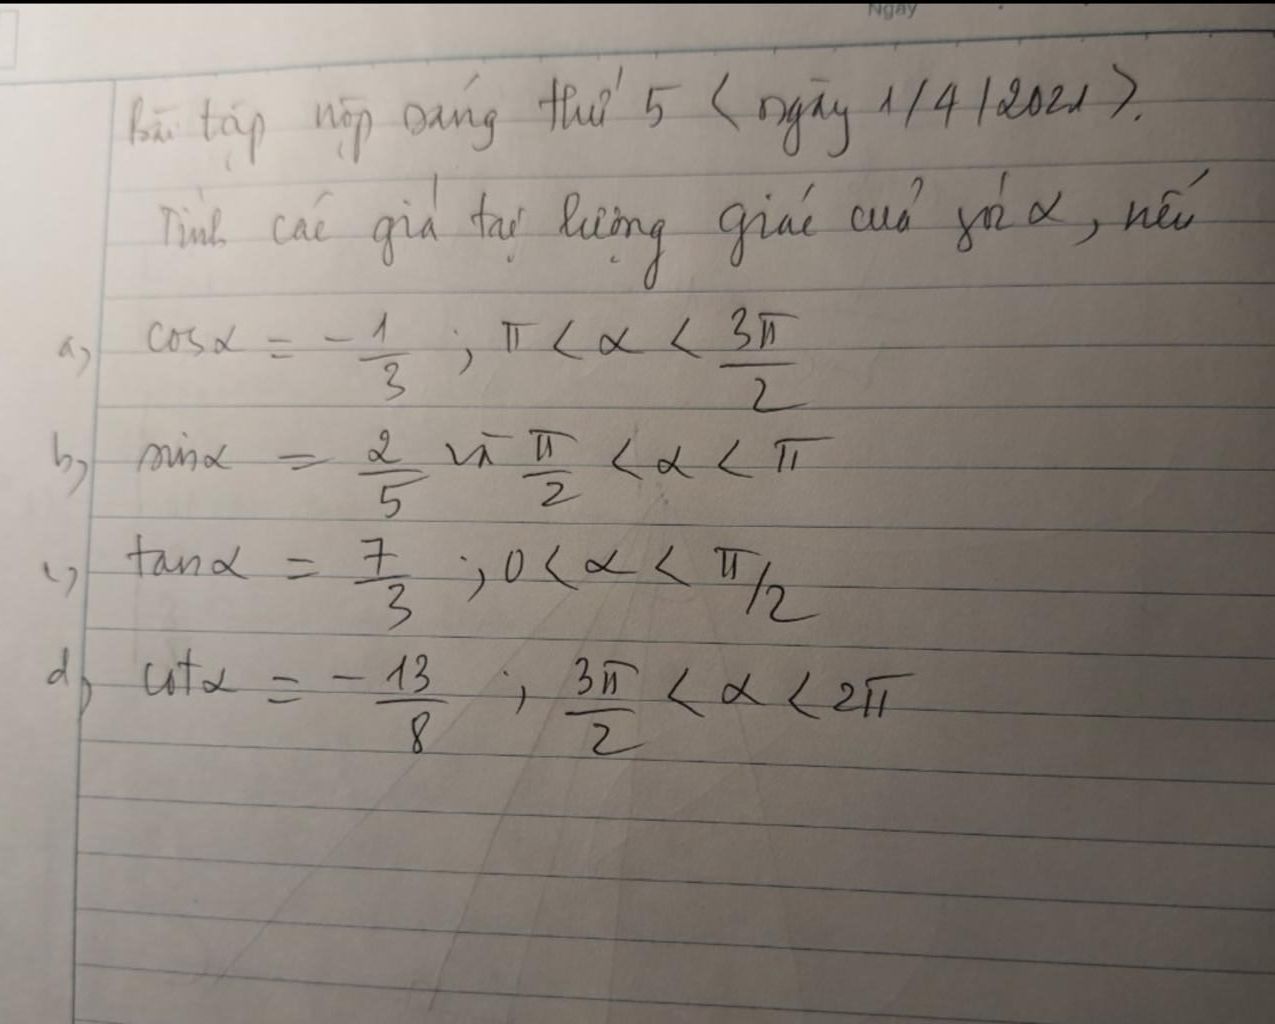 Ngày
Bài tập nộp sáng thứ 5 < ngày 1/4/2021 >.
Tính các giá trị lượng giác của góc α, nếu
a, cosα = -1/3 ; π < α < 3π/2
b, sinα = 2/5 và π/2 < α < π
c, tanα = 7/3 ; 0 < α < π/2
d, cotα = -13/8 ; 3π/2 < α < 2π